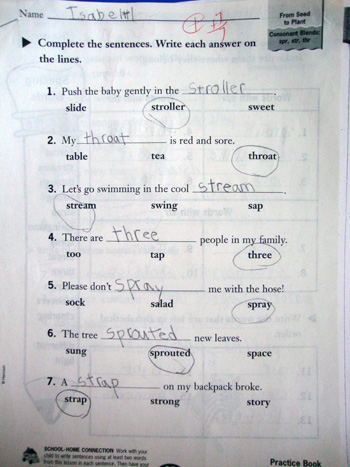 Name Isabell
From Seed
to Plant
Consonant Blends:
spr, str, thr
Complete the sentences. Write each answer on
the lines.
1. Push the baby gently in the stroller.
slide stroller sweet
2. My throat is red and sore.
table tea throat
3. Let's go swimming in the cool stream.
stream swing sap
4. There are three people in my family.
too tap three
5. Please don't spray me with the hose!
sock salad spray
6. The tree sprouted new leaves.
sung sprouted space
7. A strap on my backpack broke.
strap strong story
SCHOOL-HOME CONNECTION Work with your
child to write sentences using at least two words
from this lesson in each sentence. Then have your
Practice Book